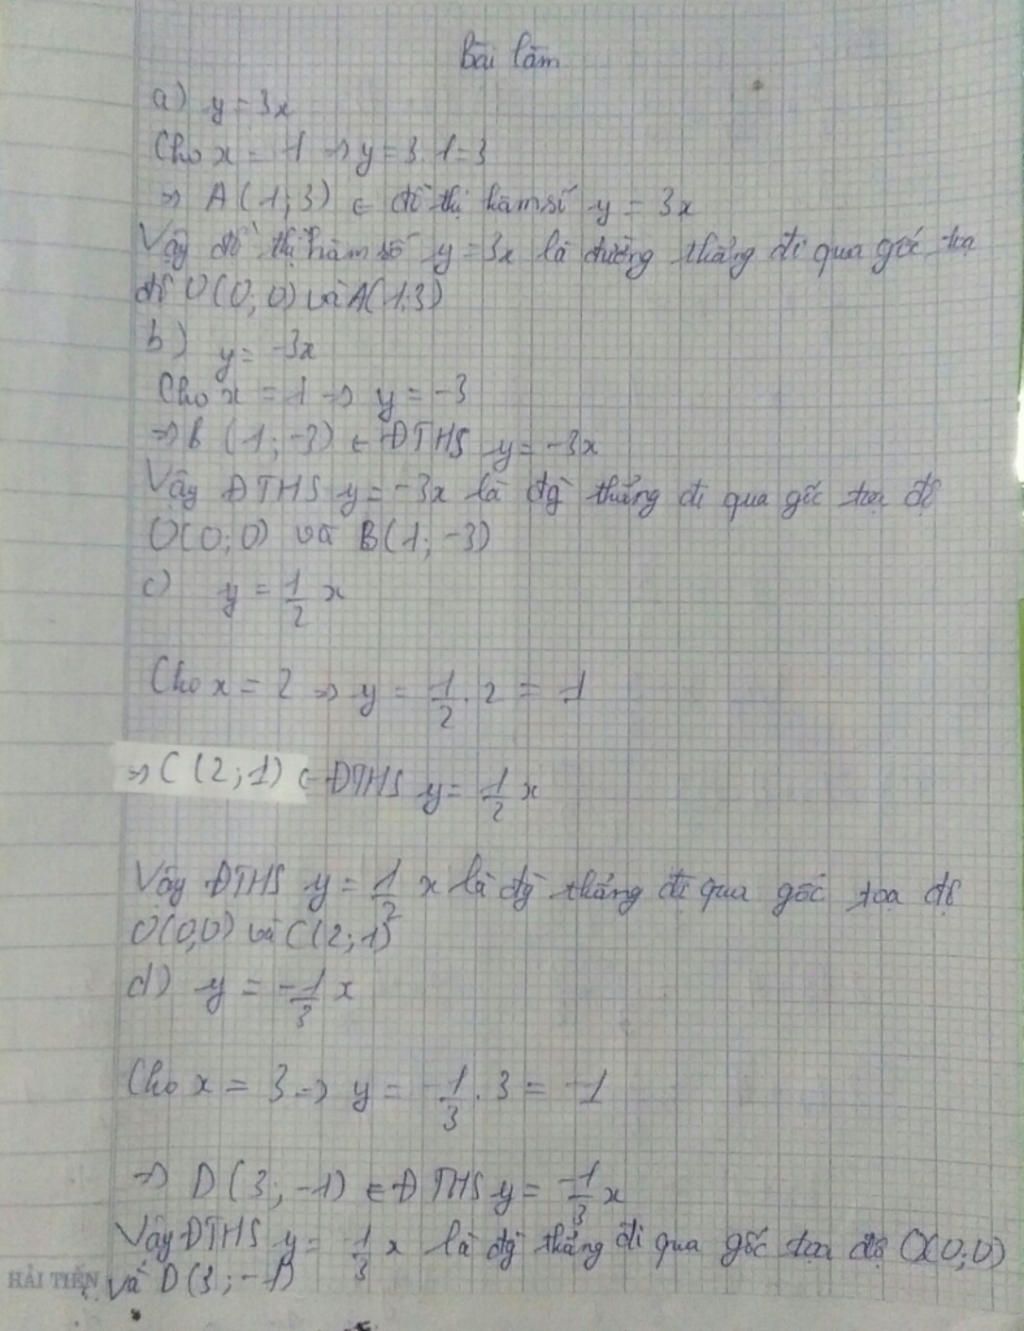 Bài làm
a) y = 3x
Cho x = 1 => y = 3.1 = 3
=> A(1;3) ∈ đồ thị hàm số y = 3x
Vậy đồ thị hàm số y = 3x là đường thẳng đi qua gốc tọa
độ O(0;0) và A(1;3)
b) y = -3x
Cho x = 1 => y = -3
=> B(1;-3) ∈ ĐTHS y = -3x
Vậy ĐTHS y = -3x là đg thẳng đi qua gốc tọa độ
O(0;0) và B(1;-3)
c) y = 1/2 x
Cho x = 2 => y = 1/2 . 2 = 1
=> C(2;1) ∈ ĐTHS y = 1/2 x
Vậy ĐTHS y = 1/2 x là đg thẳng đi qua gốc tọa độ
O(0;0) và C(2;1)
d) y = -1/3 x
Cho x = 3 => y = -1/3 . 3 = -1
=> D(3;-1) ∈ ĐTHS y = -1/3 x
Vậy ĐTHS y = -1/3 x là đg thẳng đi qua gốc tọa độ O(0;0)
và D(3;-1)
HẢI TIẾN